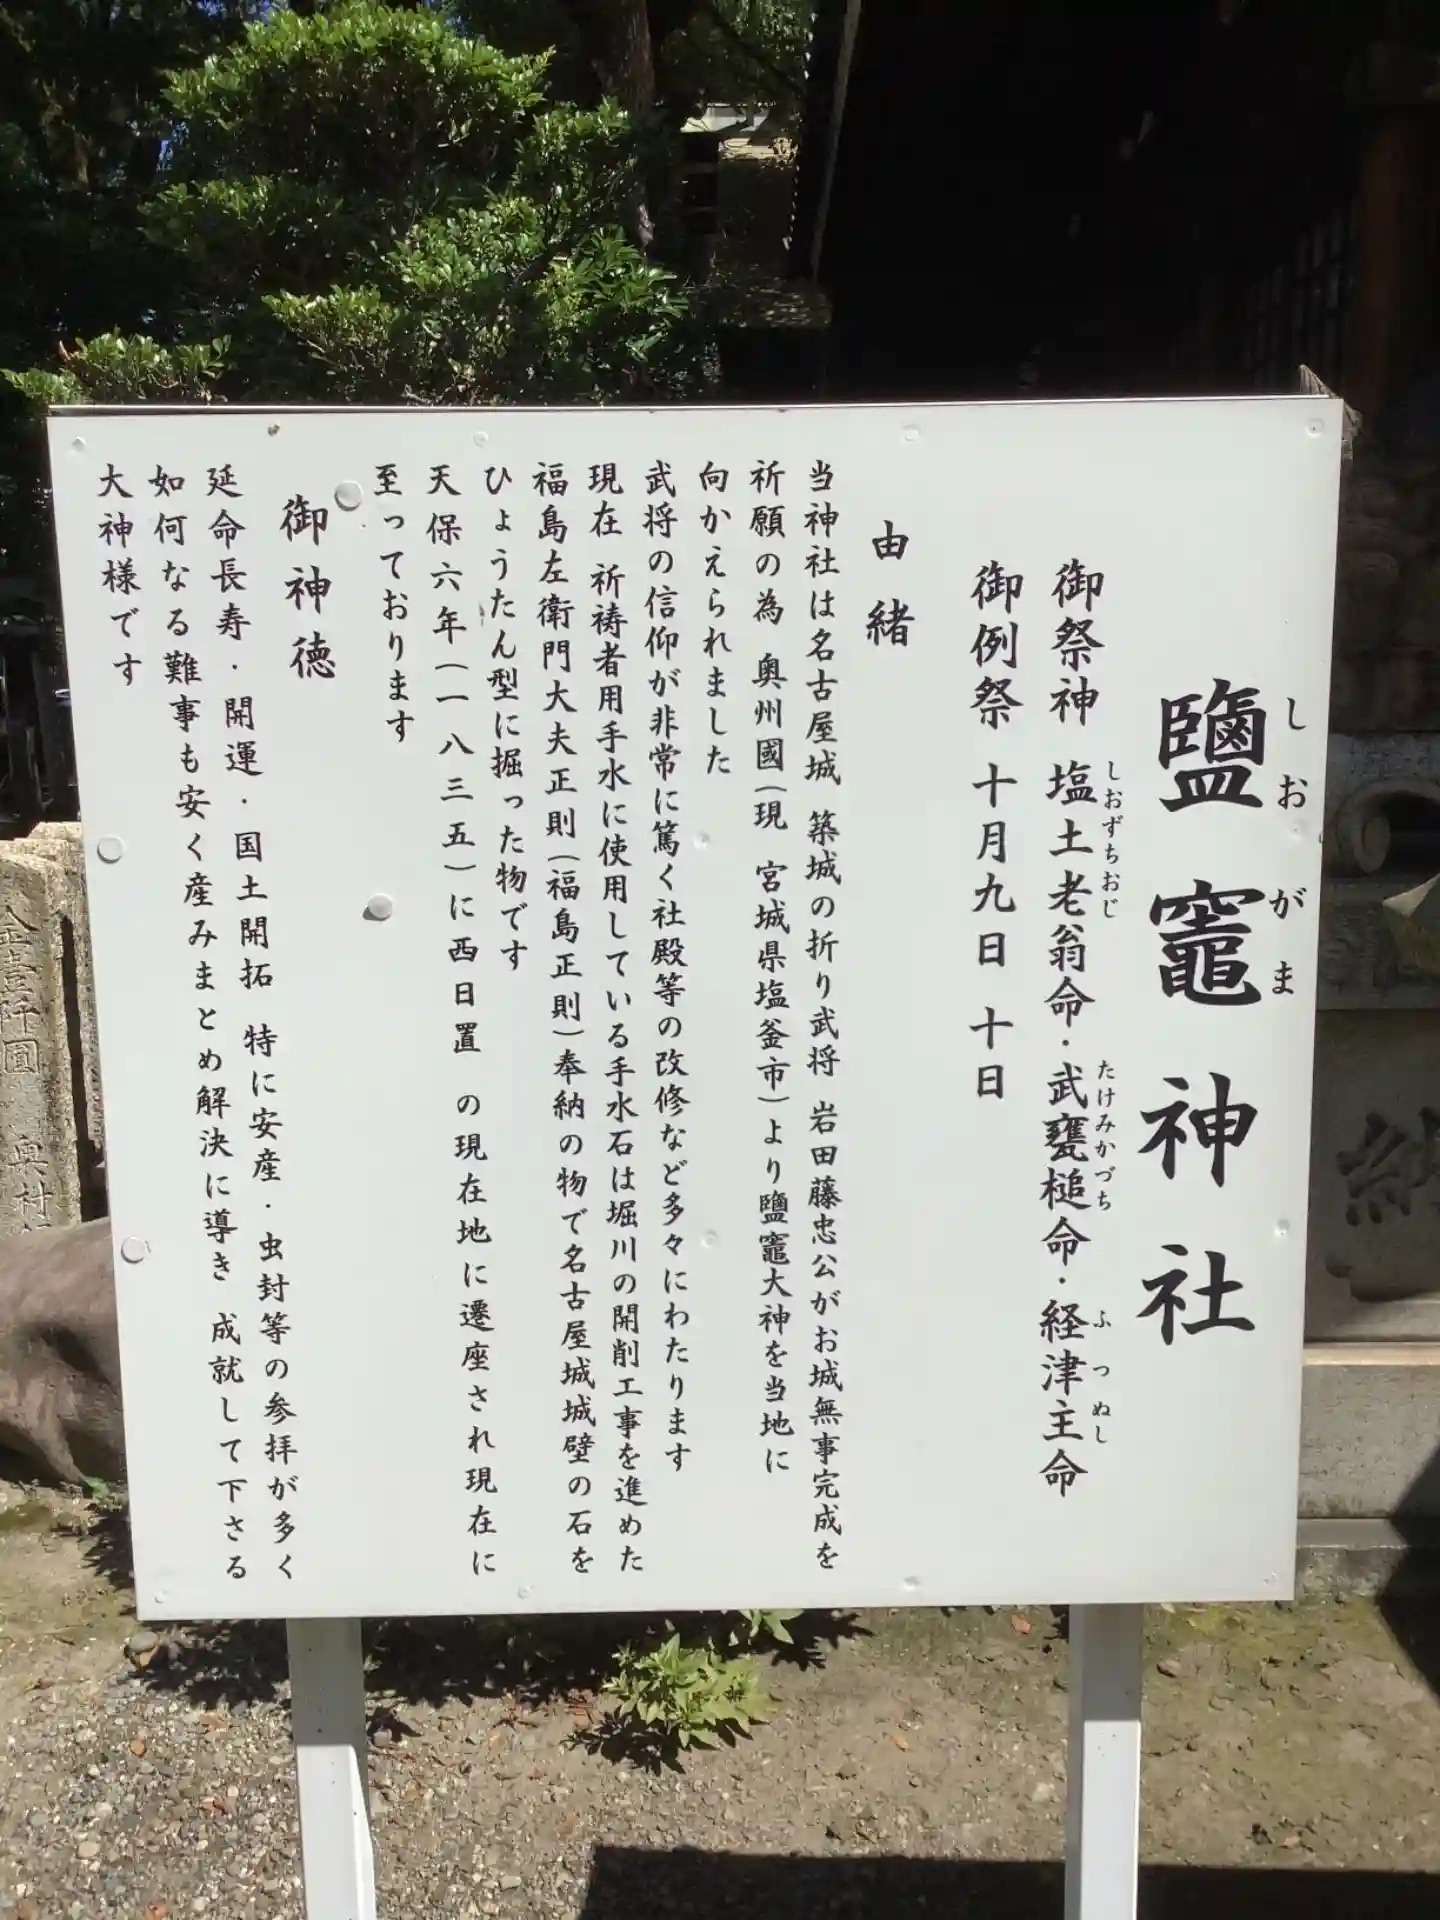 鹽竈神社
しおがま
御祭神 塩土老翁命・武甕槌命・経津主命
しおずちおじ たけみかづち ふつぬし
御例祭 十月九日 十日
由緒
当神社は名古屋城 築城の折り武将 岩田藤忠公がお城無事完成を
祈願の為 奥州國(現 宮城県塩釜市)より鹽竈大神を当地に
向かえられました
武将の信仰が非常に篤く社殿等の改修など多々にわたります
現在 祈祷者用手水に使用している手水石は堀川の開削工事を進めた
福島左衛門大夫正則(福島正則)奉納の物で名古屋城城壁の石を
ひょうたん型に掘った物です
天保六年(一八三五)に西日置 の現在地に遷座され現在に
至っております
御神徳
延命長寿・開運・国土開拓 特に安産・虫封等の参拝が多く
如何なる難事も安く産みまとめ解決に導き 成就して下さる
大神様です
金壹阡圓 奥村
納